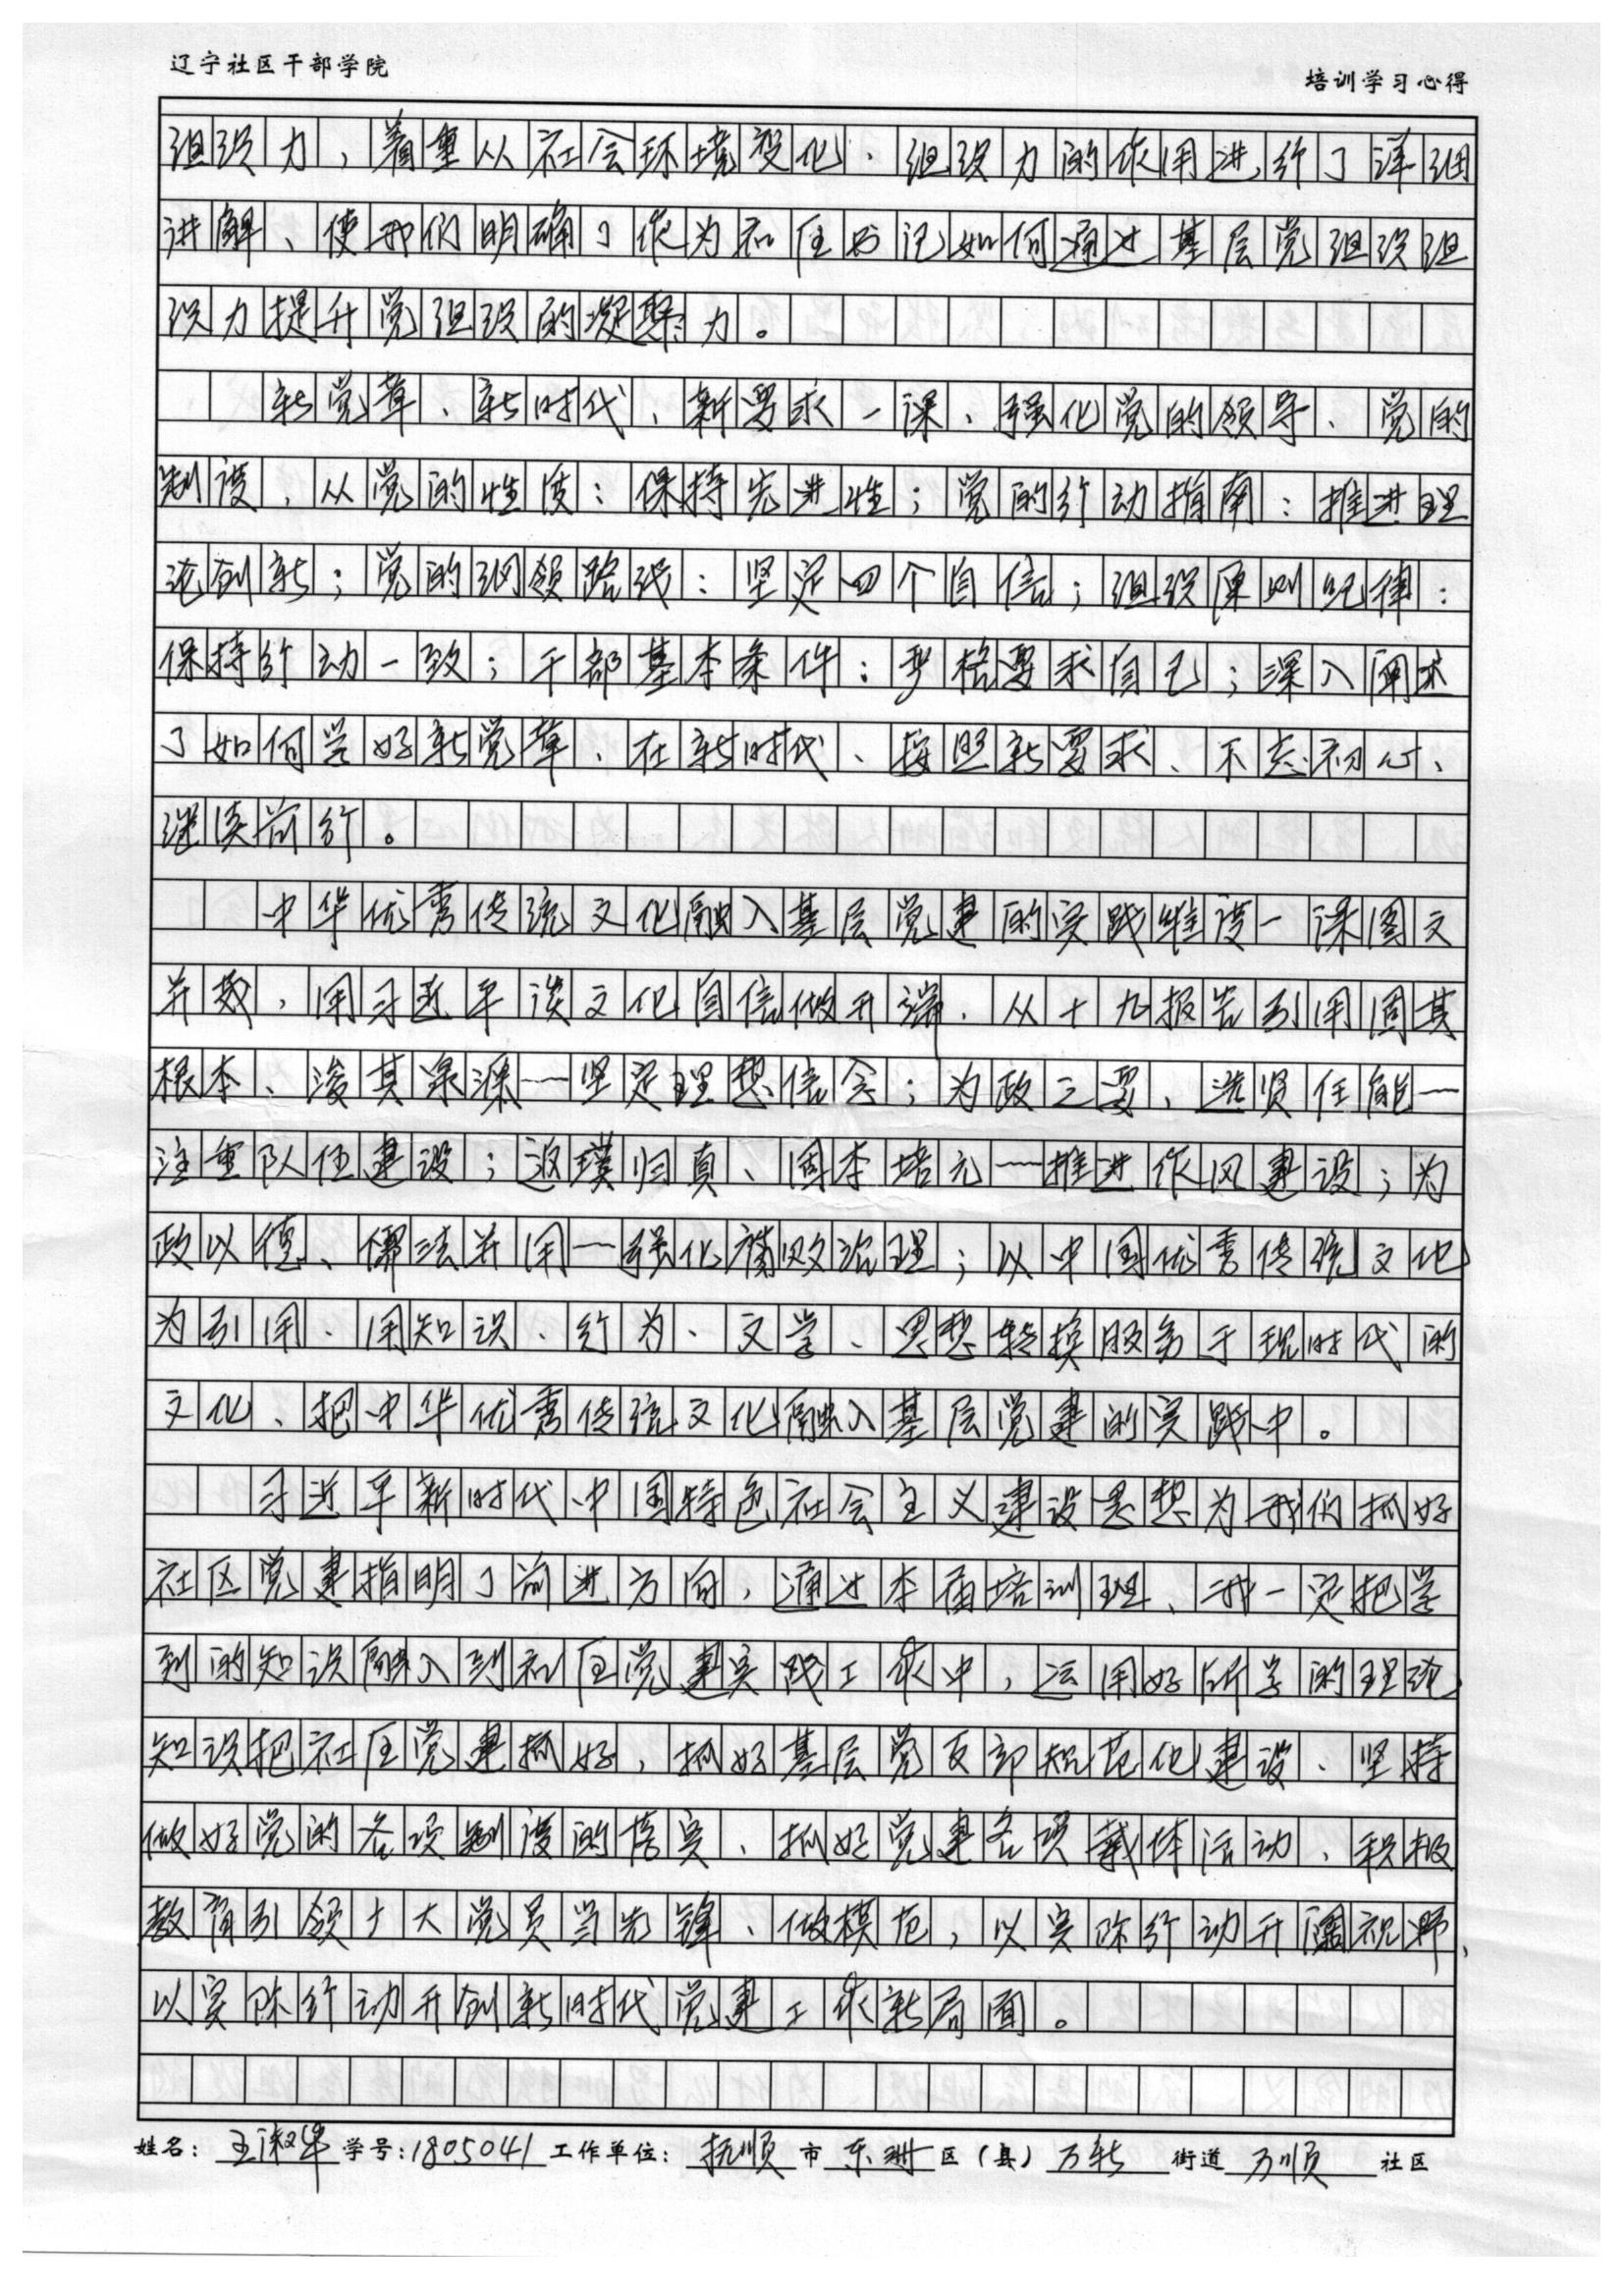 辽宁社区干部学院
培训学习心得
组织力，着重从社会环境变化、组织力的作用进行了详细
讲解、使我们明确了作为社区书记如何通过基层党组织组
织力提升党组织的凝聚力。
新党章、新时代、新要求一课、强化党的领导、党的
制度，从党的性质：保持先进性；党的行动指南：推进理
论创新；党的纲领路线：坚定四个自信；组织原则纪律：
保持行动一致；干部基本条件：严格要求自己；深入阐述
了如何学好新党章、在新时代、按照新要求、不忘初心、
继续前行。
中华优秀传统文化融入基层党建的实践维度一课图文
并茂，用习近平谈文化自信做开端、从十九报告引用固其
根本、浚其泉源——坚定理想信念；为政之要、选贤任能—
注重队伍建设；返璞归真、固本培元——推进作风建设；为
政以德、儒法并用—强化腐败治理；以中国优秀传统文化
为引用、用知识、行为、文学、思想转换服务于现时代的
文化、把中华优秀传统文化融入基层党建的实践中。
习近平新时代中国特色社会主义建设思想为我们抓好
社区党建指明了前进方向，通过本届培训班、我一定把学
到的知识融入到社区党建实践工作中，运用好所学的理论
知识把社区党建抓好，抓好基层党支部规范化建设、坚持
做好党的各项制度的落实、抓好党建各项载体活动、积极
教育引领广大党员当先锋、做模范，以实际行动开阔视野、
以实际行动开创新时代党建工作新局面。
姓名：王淑华 学号：1805041 工作单位：抚顺市东洲区（县）万新街道万顺社区